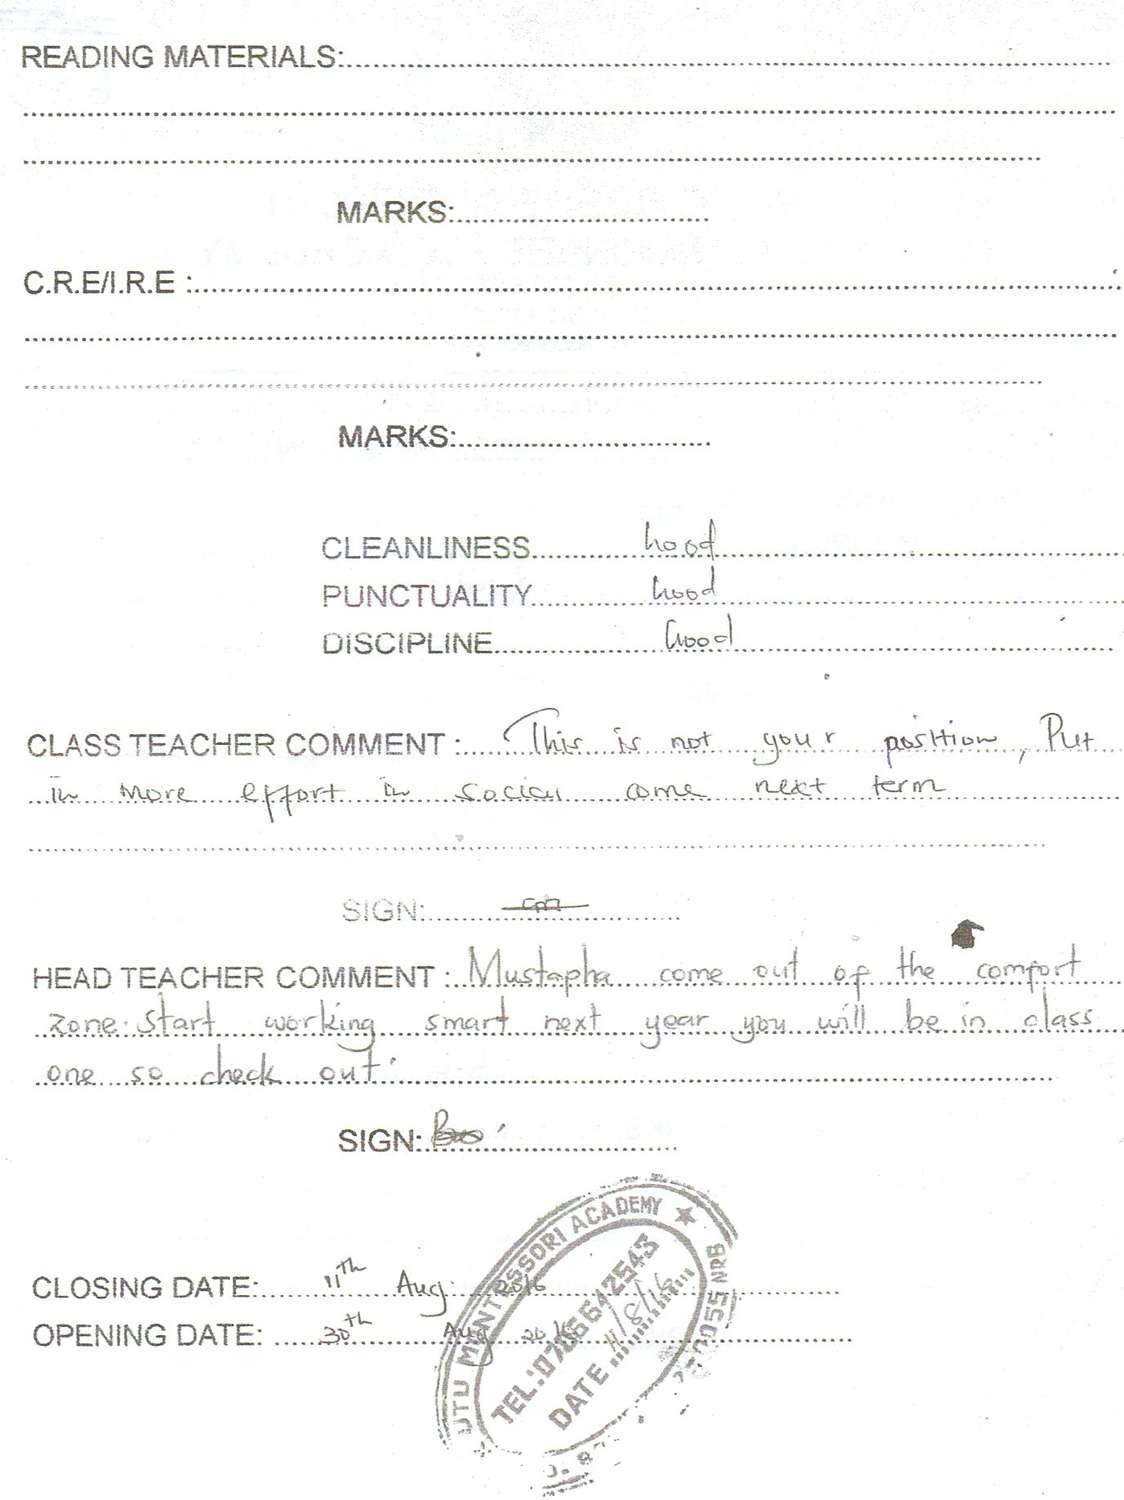 READING MATERIALS:
MARKS:
C.R.E/I.R.E :
MARKS:
CLEANLINESS Good
PUNCTUALITY Good
DISCIPLINE Good
CLASS TEACHER COMMENT : This is not your position, Put
in more effort in social come next term
SIGN:
HEAD TEACHER COMMENT : Mustapha come out of the comfort
zone. Start working smart next year you will be in class
one so check out.
SIGN:
CLOSING DATE: 11th Aug. 2016
OPENING DATE: 30th Aug 2016
UTU MONTESSORI ACADEMY
TEL: 0706642543
DATE 11/8/16
NRB